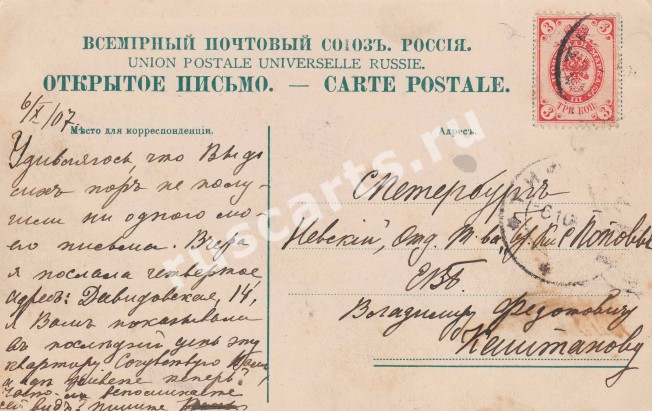 ВСЕМІРНЫЙ ПОЧТОВЫЙ СОЮЗЪ. РОССІЯ.
UNION POSTALE UNIVERSELLE RUSSIE.
ОТКРЫТОЕ ПИСЬМО. — CARTE POSTALE.
3 3
ТРИ КОП.
3 3
6/X/07.
Мѣсто для корреспонденціи.
Адресъ.
Удивляюсь, что Вы до
сихъ поръ не полу-
чили ни одного мо-
его письма. Вчера
я послала четвертое
адресъ: Давидовская, 14,
я Вамъ показывала
въ послѣдній день эту
квартиру Сочувствую Вамъ
теперь?
часто ли вспоминаете
пишите
СПетербургъ
Невскій, Отд. Т-ва К. и С. Поповы
ЕВБ.
Владиміру Федотовичу
Каштанову
ruscarts.ru